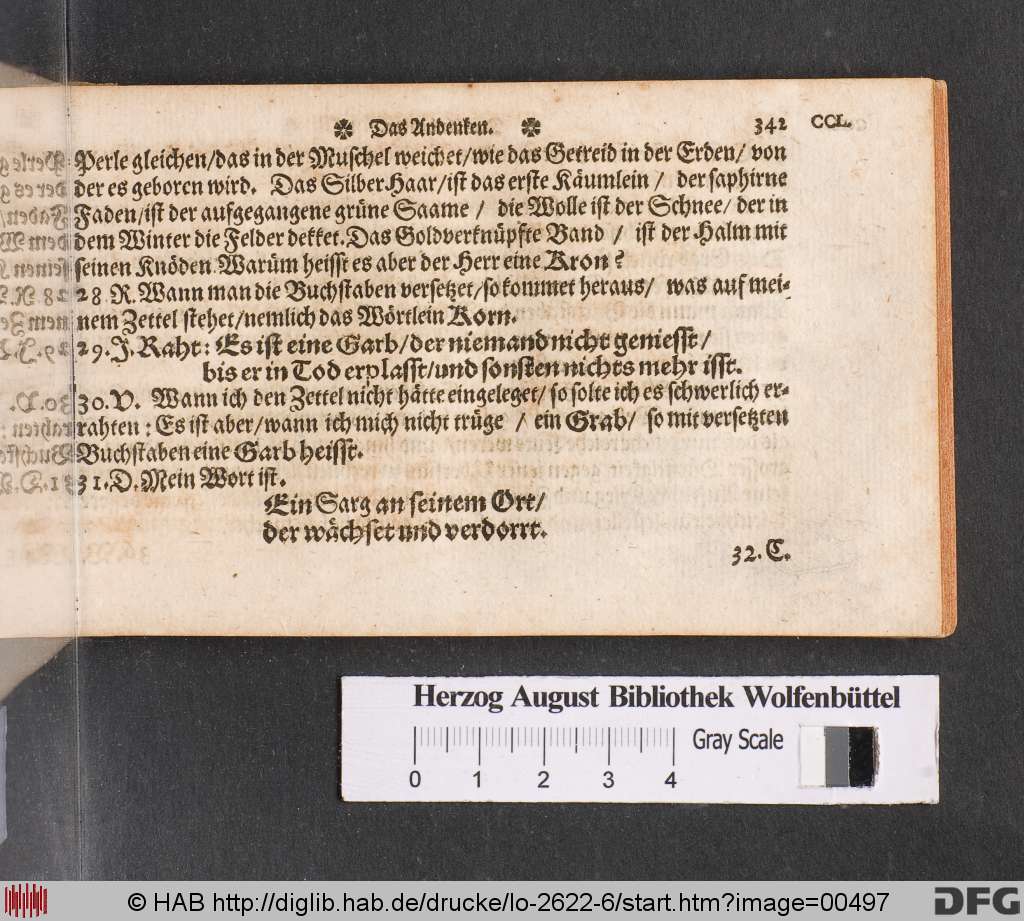 Das Andenken. 342 CCL.
Perle gleichen/das in der Muschel weichet/wie das Getreid in der Erden/ von
der es geboren wird. Das Silber Haar/ist das erste Käumlein / der saphirne
Faden/ist der aufgegangene grüne Saame / die Wolle ist der Schnee/ der in
dem Winter die Felder dekket. Das Goldverknüpfte Band / ist der Halm mit
seinen Knöden. Warüm heisst es aber der Herr eine Kron?
28 R. Wann man die Buchstaben versetzet/so kommet heraus/ was auf mei-
nem Zettel stehet/nemlich das Wörtlein Korn.
29. J. Raht: Es ist eine Garb/der niemand nicht geniesst/
bis er in Tod erplasst/und sonsten nichts mehr isst.
30. V. Wann ich den Zettel nicht hätte eingeleget/ so solte ich es schwerlich er-
rahten: Es ist aber/wann ich mich nicht trüge / ein Grab/ so mit versetzten
Buchstaben eine Garb heisst.
31. D. Mein Wort ist.
Ein Sarg an seinem Ort/
der wächset und verdorrt.
32. C.
Herzog August Bibliothek Wolfenbüttel
0 1 2 3 4 Gray Scale
© HAB http://diglib.hab.de/drucke/lo-2622-6/start.htm?image=00497 DFG